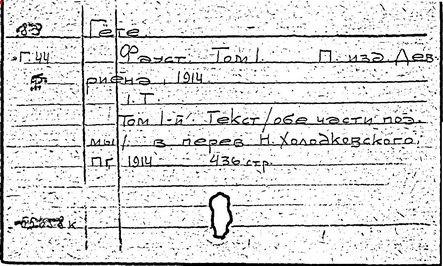 89 Гете
Г.44 Фауст. Том I. П. изд Дев
риена, 1914
1 т.
Том I-й. Текст/обе части поэ
мы/ в перев Н. Холодковского.
Пг 1914 436 стр.